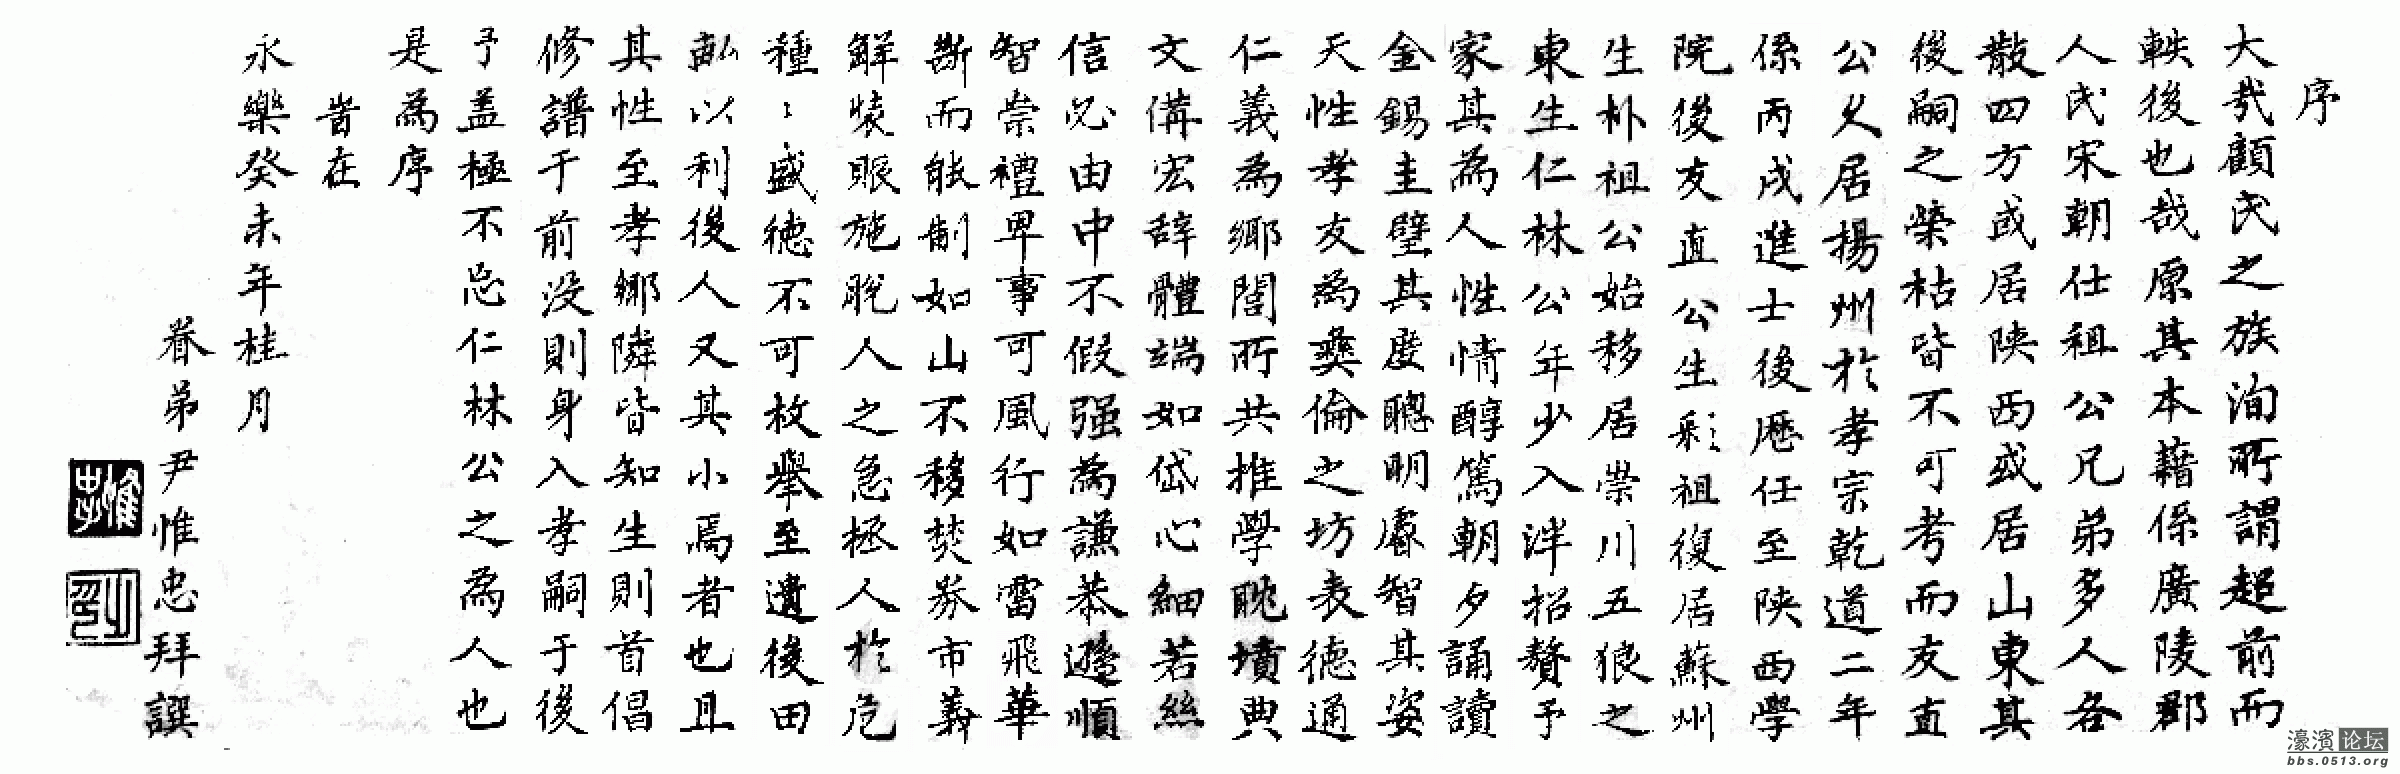 序
大哉顧氏之族洵所謂超前而
軼後也哉原其本藉係廣陵郡
人民宋朝仕祖公兄弟多人各
散四方或居陝西或居山東其
後嗣之榮枯皆不可考而友直
公久居揚州於孝宗乾道二年
係丙戌進士後歷任至陝西學
院後友直公生彩祖復居蘇州
生朴祖公始移居崇川五狼之
東生仁林公年少入泮招贅予
家其為人性情醇篤朝夕誦讀
金錫圭璧其度聰明睿智其姿
天性孝友為彝倫之坊表德通
仁義為鄉閭所共推學眈墳典
文備宏辞體端如岱心細若絲
信必由中不假强為謙恭遜順
智崇禮卑事可風行如雷飛華
斷而能制如山不移焚券市義
解裝賑施脫人之急拯人於危
種〻盛德不可枚舉至遺後田
畝以利後人又其小焉者也且
其性至孝鄉隣皆知生則首倡
修譜于前没則身入孝嗣于後
予盖極不忘仁林公之為人也
是為序
旹在
永樂癸未年桂月
眷弟尹惟忠拜譔
惟忠
濠滨论坛
bbs.0513.org